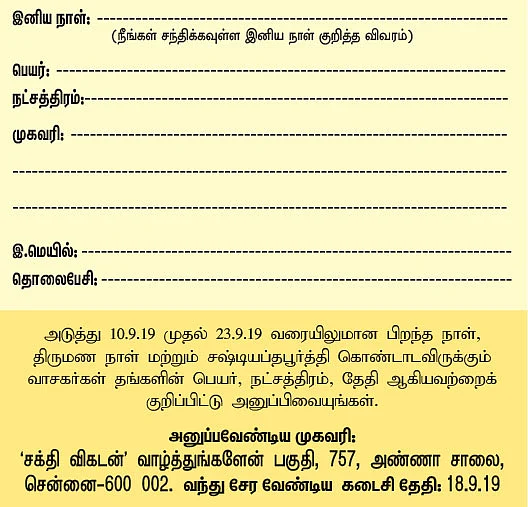 இனிய நாள்: ----------------------------------------------------------------
(நீங்கள் சந்திக்கவுள்ள இனிய நாள் குறித்த விவரம்)
பெயர்: ----------------------------------------------------------------------
நட்சத்திரம்:-----------------------------------------------------------------
முகவரி: --------------------------------------------------------------------
-----------------------------------------------------------------------------
-----------------------------------------------------------------------------
இ.மெயில்: ------------------------------------------------------------------
தொலைபேசி: ---------------------------------------------------------------
அடுத்து 10.9.19 முதல் 23.9.19 வரையிலுமான பிறந்த நாள்,
திருமண நாள் மற்றும் சஷ்டியப்தபூர்த்தி கொண்டாடவிருக்கும்
வாசகர்கள் தங்களின் பெயர், நட்சத்திரம், தேதி ஆகியவற்றைக்
குறிப்பிட்டு அனுப்பிவையுங்கள்.
அனுப்பவேண்டிய முகவரி:
‘சக்தி விகடன்’ வாழ்த்துங்களேன் பகுதி, 757, அண்ணா சாலை,
சென்னை-600 002. வந்து சேர வேண்டிய கடைசி தேதி: 18.9.19